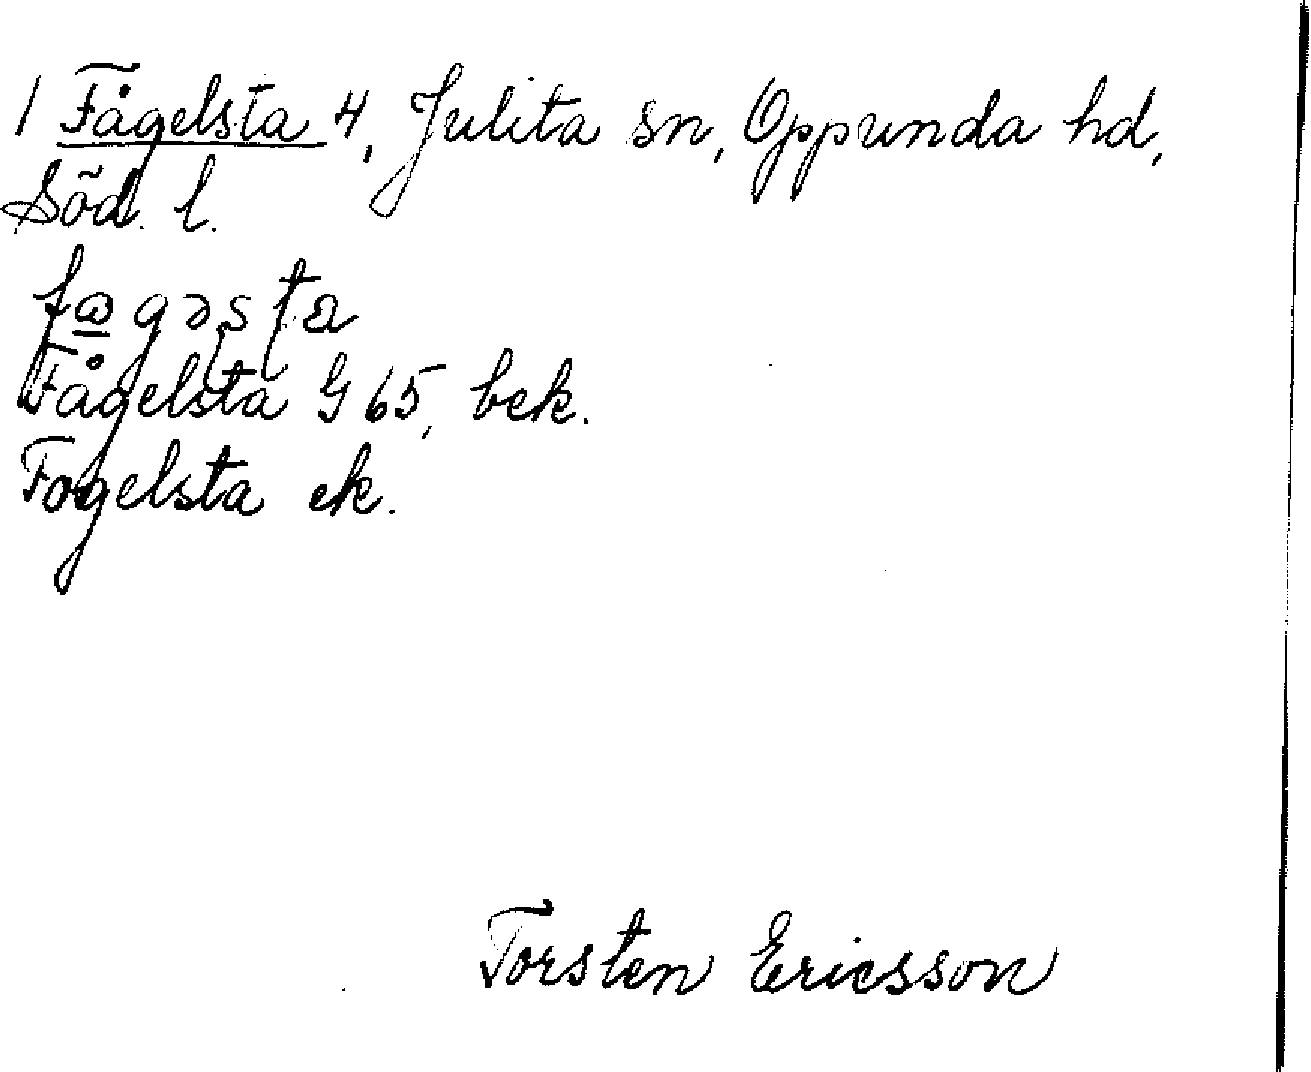 1 Fågelsta 4, Julita sn, Oppunda hd,
Söd. l.
Fågelsta G 65, bek.
Fogelsta ek.
Torsten Ericsson